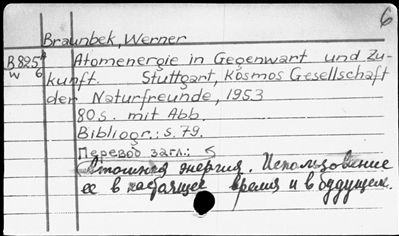 6
Braunbek, Werner
B825 Atomenergie in Gegenwart und Zu-
w 6 kunft. Stuttgart, Kosmos Gesellschaft
der Naturfreunde, 1953
80 s. mit Abb.
Bibliogr.: s. 79.
Перевод загл.:
Атомная энергия. Использование
ее в настоящее время и в будущем.